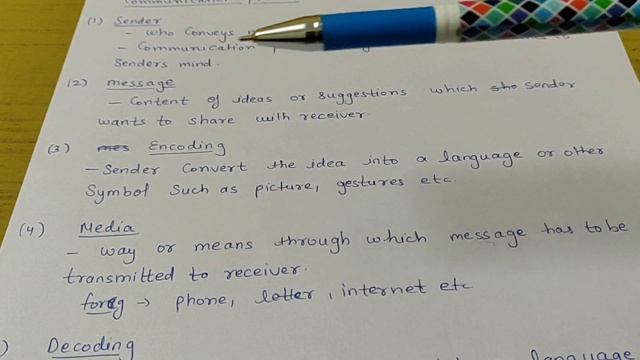 Communication
(1) Sender
- who Conveys
- Communication
Senders mind.
(2) message
- Content of ideas or suggestions which sender
wants to share with receiver.
(3) Encoding
- Sender Convert the idea into a language or other
Symbol Such as picture, gestures etc.
(4) Media
- way or means through which message has to be
transmitted to receiver.
for eg → phone, letter, internet etc
) Decoding
language